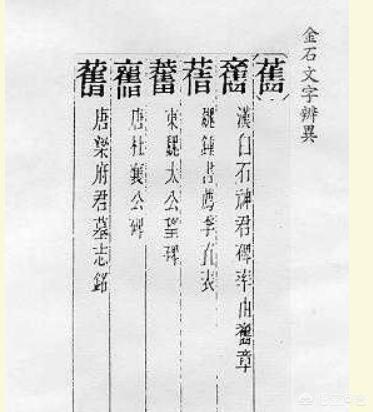 金石文字辨異
舊
漢白石神君碑率由舊章
魏鍾書薦季直表
東魏太公望碑
唐杜襄公碑
舊
唐府君墓志銘